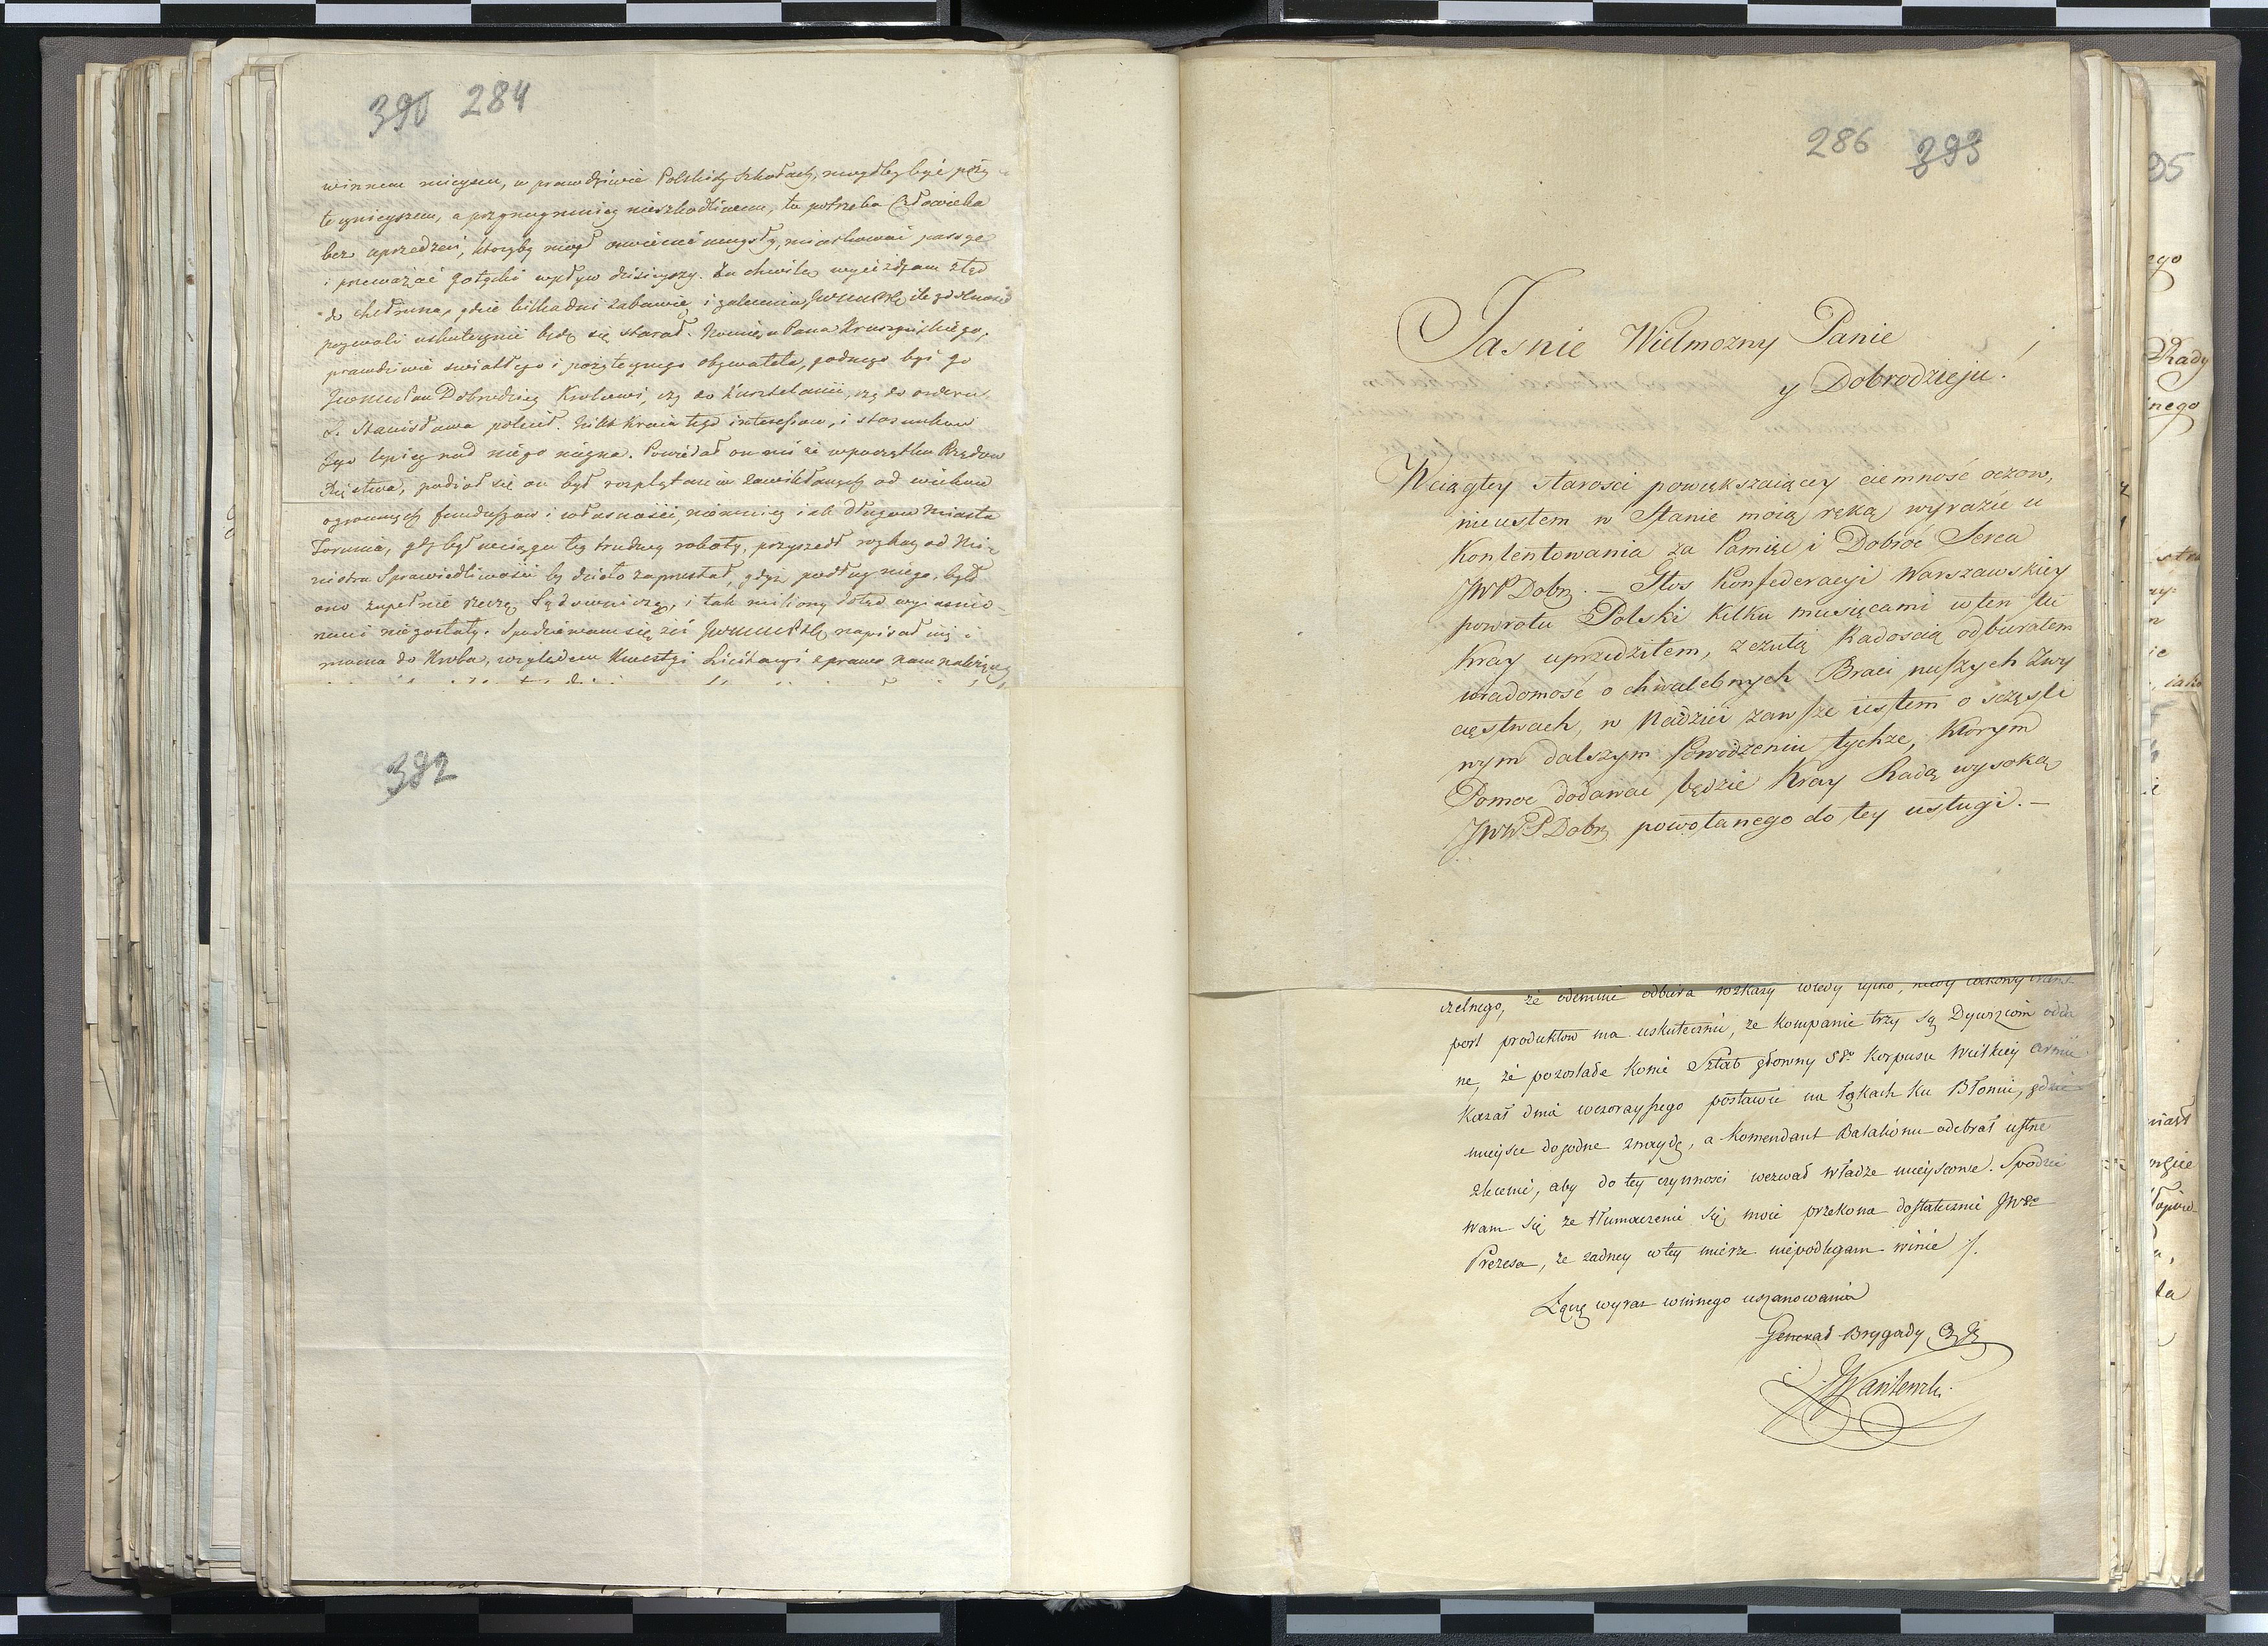 390 284
winnem mieyscu, w prawdziwie Polskich Szkołach, mogłby być poży
tecznieyszem, a przynaymniey nieszkodliwem, tu potrzeba Człowieka
bez uprzedzeń, któryby mógł oswiecić umysły, miarkować passye
i przeważać Gotycki wpływ dzisieyszy. Za chwilę wyieżdżam ztąd
do Chełmna, gdzie kilka dni zabawię i zalecenia ile zdolność
pozwoli uskutecznić będę się starał. Pana Kruszyńskiego,
prawdziwie swiatłego i pożytecznego obywatela, godnego byś go
Pan Dobrodziey Królowi, czy do Kasztelanii, czy do orderu
S. Stanisława polecił. Nikt Kraiu tego interessow, i stosunkow
Jego lepiey nad niego niezna. Powiedał on mi że w początku Rządow
Xięstwa, podiął się on był rozplątania zawikłanych od wiekow
ogromnych funduszow i własności, niemniey iak długow Miasta
Torunia, gdy był w ciągu tey trudney roboty, przyszedł rozkaz od Mi
nistra Sprawiedliwości by dzieło zaprzestał, gdyż podług niego, było
ono zupełnie rzeczą Sądowniczą, i tak miliony dotąd wyiasnio
nemi niezostały. Spodziewam się że napisał iuż
mowa do Króla, względem Kwestyi
382
286 393
Jasnie Wielmozny Panie
y Dobrodzieju!
W ciągłey starosci powiększaiącey ciemność oczow,
nie iestem w Stanie moią ręką wyrazić u
Kontentowania za Pamięć i Dobroć Serca
JWP Dobr. – Głos Konfederacyi Warszawskiey
powrotu Polski kilku miesięcami w ten tu
Kray uprzedziłem, z czułą Radością odburałem
wiadomość o chwalebnych Braci naszych Zwy
cięstwach, w Nadziei zawsze iestem o sczęsli
wym dalszym Powodzeniu tychże, Którym
Pomoc dodawać będzie Kray Radą wysoką
JWWP Dobr. powołanego do tey usługi. –
czelnego, że odemnie odbiera rozkazy wtedy tylko, kiedy iakowy trans
port produktow ma uskutecznić, że kompanie trzy są Dywizjom odda
ne, że pozostałe Konie Sztab głowny 5go Korpusu Wielkiey Armii
Kazał dnia wczorayszego postawić na łąkach ku Błoniu, gdzie
mieysce dogodne znaydą, a Komendant Batalionu odebrał ustne
zlecenie, aby do tey czynnosci wezwał władze mieyscowe. Spodzie
wam się że tłumaczenie się moie przekona dostatecznie JWgo
Prezesa, że zadney w tey mierze niepodlegam winie /.
Łączę wyraz winnego uszanowania
Generał Brygady